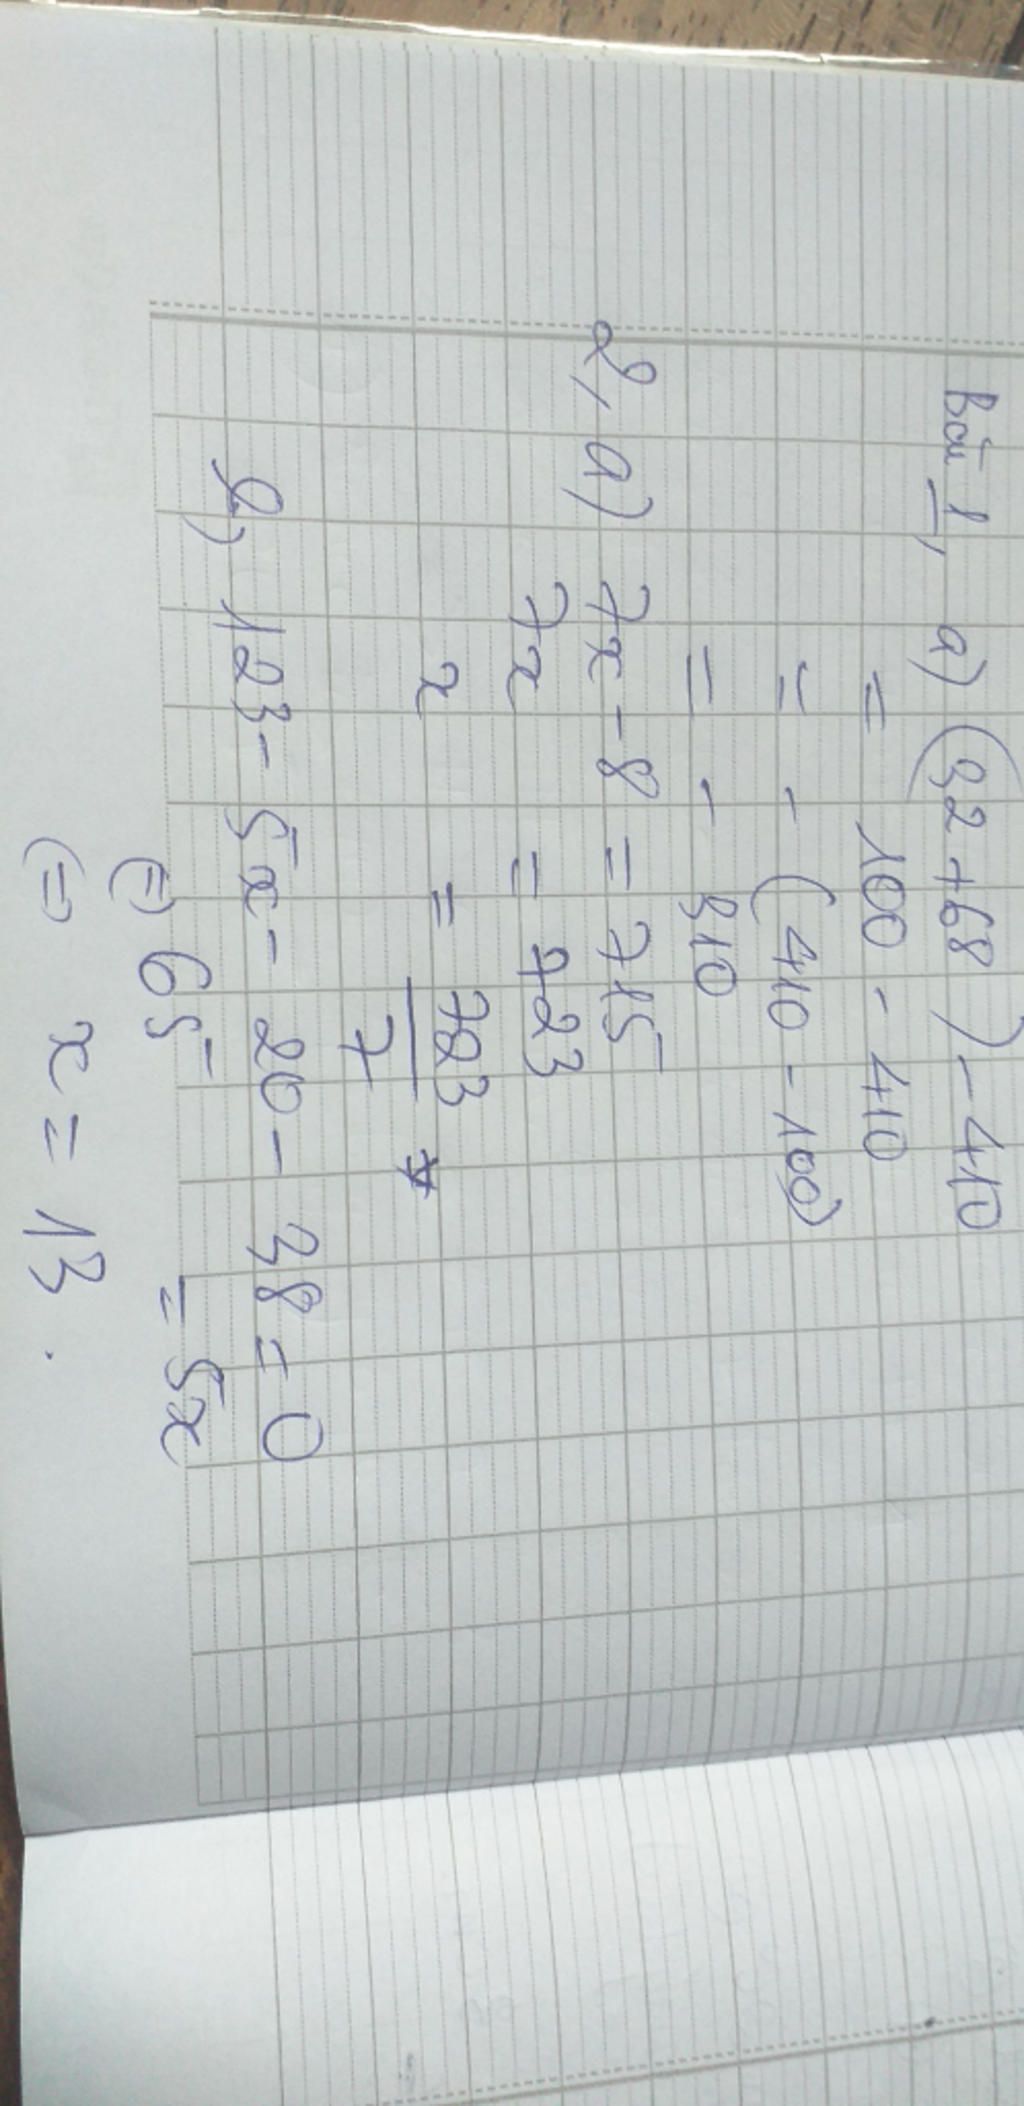 Bài 1, a) (32 + 68) - 410
= 100 - 410
= - (410 - 100)
= - 310
2, a) 7x - 8 = 715
7x = 723
x = 723/7
b) 123 - 5x - 20 - 38 = 0
(=) 65 = 5x
(=) x = 13.